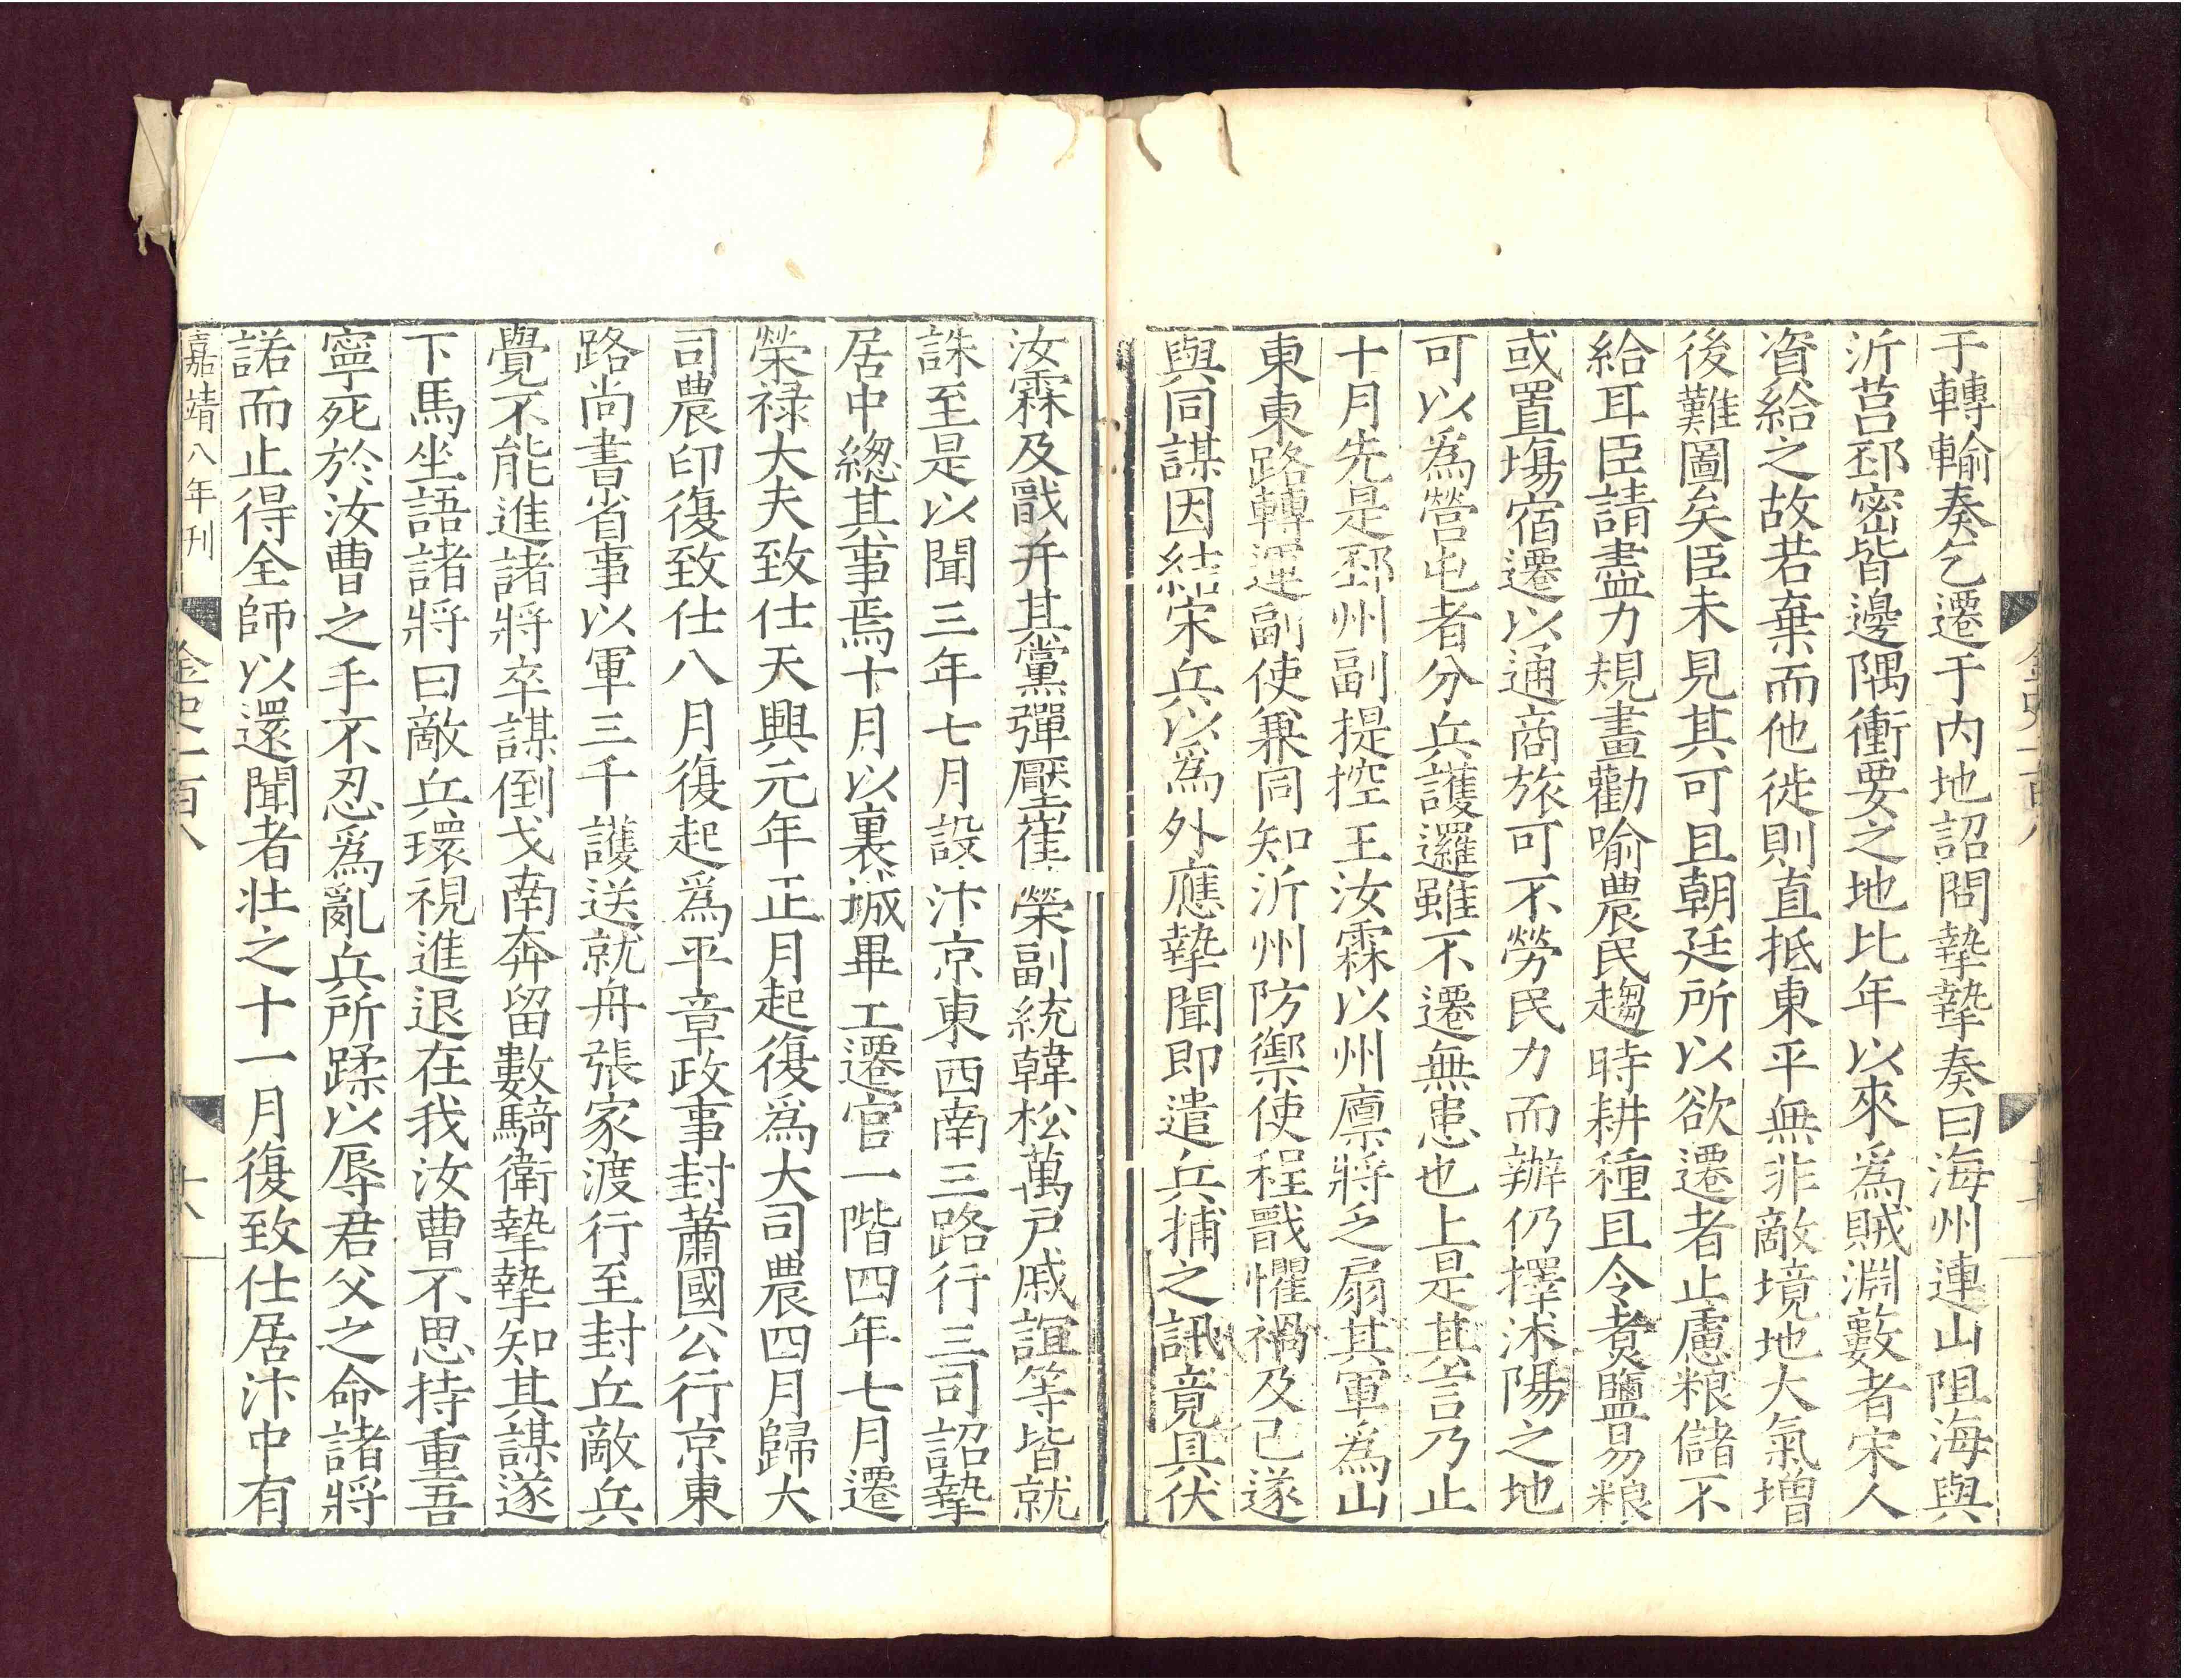 于轉輸奏乞遷于内地詔問摯摯奏曰海州連山阻海與
沂莒邳密皆邊隅衝要之地比年以來爲賊淵藪者宋人
資給之故若棄而他徙則直抵東平無非敵境地大氣增
後難圖矣臣未見其可且朝廷所以欲遷者止慮粮儲不
給耳臣請盡力規畫勸喻農民趨時耕種且令煑鹽易粮
或置塲宿遷以通商旅可不勞民力而辦仍擇沭陽之地
可以爲營屯者分兵護邏雖不遷無患也上是其言乃止
十月先是邳州副提控王汝霖以州廪將乏扇其軍爲山
東東路轉運副使兼同知沂州防禦使程戩懼禍及己遂
與同謀因結宋兵以爲外應摯聞即遣兵捕之訊竟具伏
汝霖及戩并其黨彈壓崔榮副統韓松萬戸戚誼等皆就
誅至是以聞三年七月設汴京東西南三路行三司詔摯
居中緫其事焉十月以裏城畢工遷官一階四年七月遷
榮禄大夫致仕天興元年正月起復爲大司農四月歸大
司農印復致仕八月復起爲平章政事封蕭國公行京東
路尚書省事以軍三千護送就舟張家渡行至封丘敵兵
覺不能進諸將卒謀倒戈南奔留數騎衛摯摯知其謀遂
下馬坐語諸將曰敵兵環視進退在我汝曹不思持重吾
寧死於汝曹之手不忍爲亂兵所蹂以辱君父之命諸將
諾而止得全師以還聞者壮之十一月復致仕居汴中有
嘉靖八年刊
金史一百八
十八